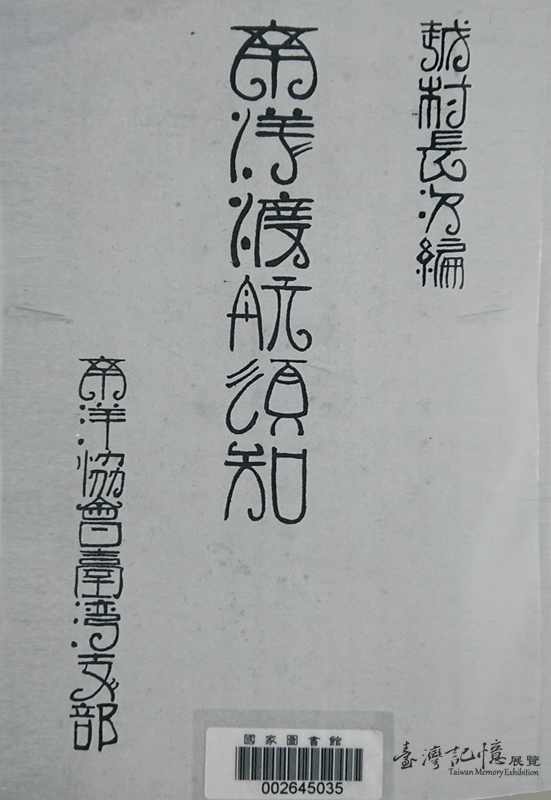 越村長次編
南洋渡航須知
南洋協會臺灣支部
國家圖書館
002645035
臺灣記憶展覽
Taiwan Memory Exhibition